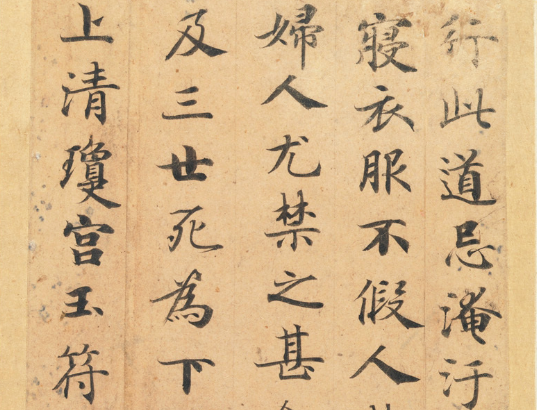 行此道忌淹汙
寢衣服不假人
婦人尤禁之甚
及三世死為下
上清瓊宮玉符